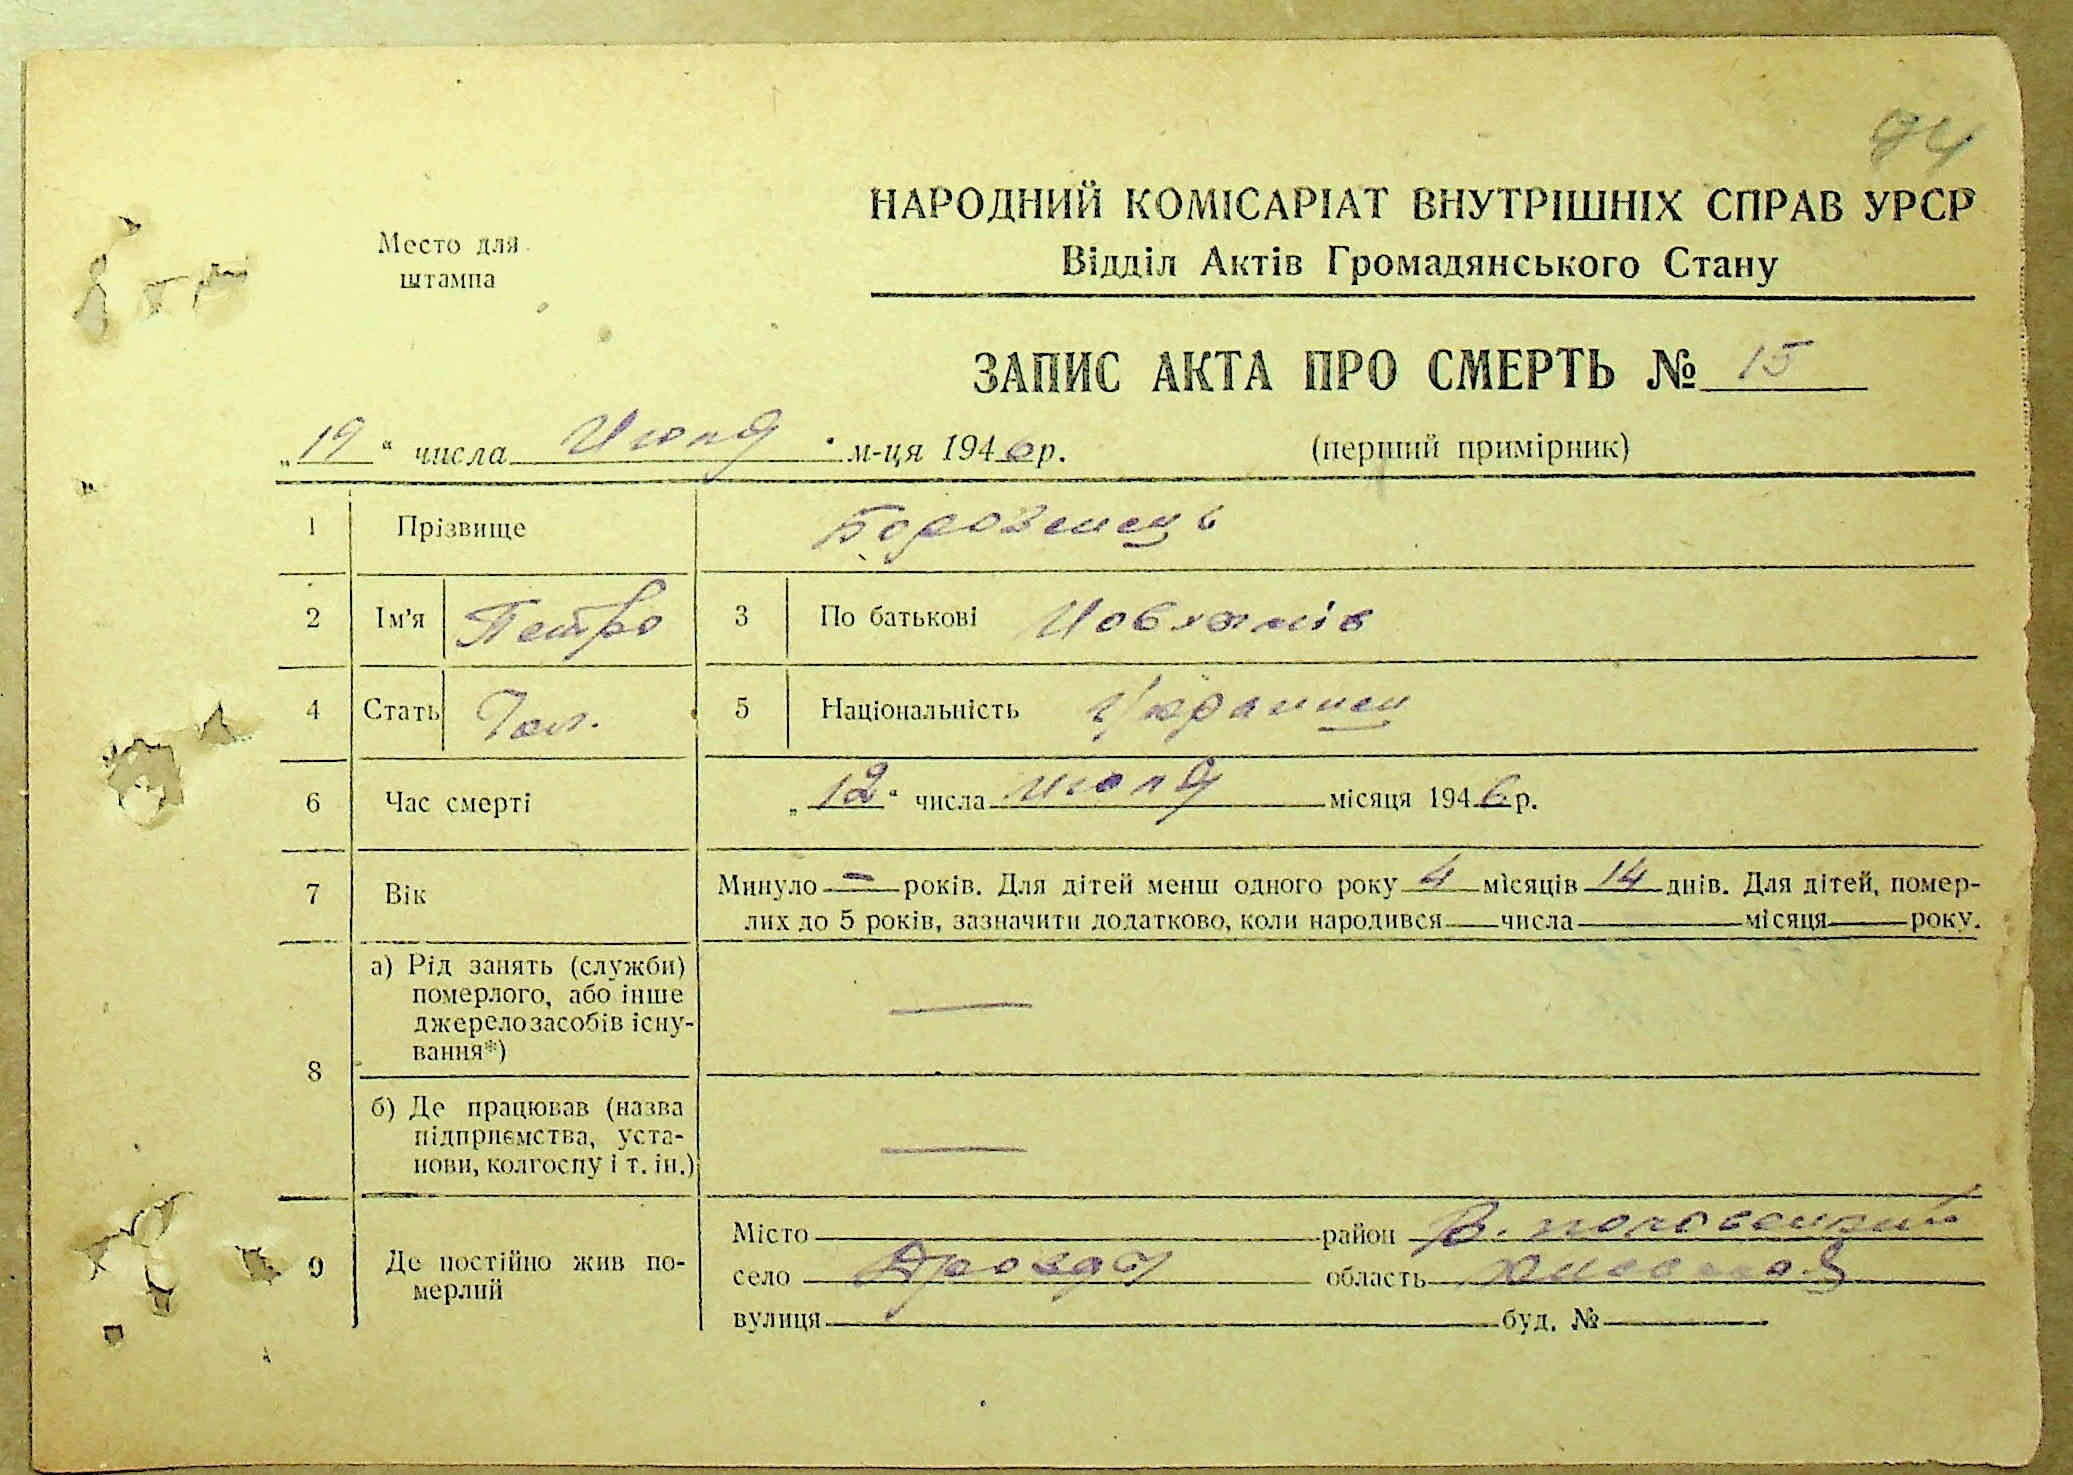 94
НАРОДНИЙ КОМІСАРІАТ ВНУТРІШНІХ СПРАВ УРСР
Место для штампа
Відділ Актів Громадянського Стану
ЗАПИС АКТА ПРО СМЕРТЬ № 15
„19“ числа Июля м-ця 1946 р. (перший примірник)
1 Прізвище Борозенець
2 Ім'я Петро 3 По батькові
4 Стать Чол. 5 Національність Украинец
6 Час смерті „12“ числа июля місяця 1946 р.
7 Вік Минуло — років. Для дітей менш одного року 4 місяців 14 днів. Для дітей, помер-
лих до 5 років, зазначити додатково, коли народився числа місяця року.
8 а) Рід занять (служби)
померлого, або інше
джерело засобів існу-
вання*) —
б) Де працював (назва
підприємства, уста-
нови, колгоспу і т. ін.) —
9 Де постійно жив по-
мерлий
Місто район В. половецкий
село Дрозды область Киевская
вулиця буд. №